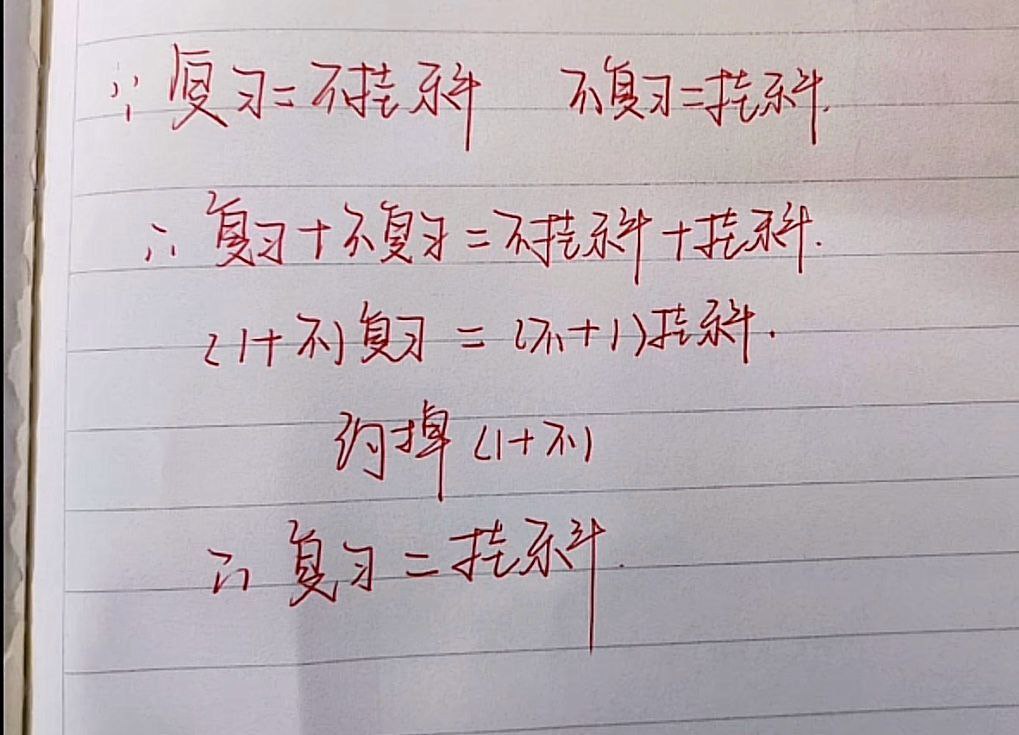 ∵ 复习=不挂科 不复习=挂科.
∴ 复习+不复习=不挂科+挂科.
(1+不)复习=(不+1)挂科.
约掉(1+不)
∴ 复习=挂科.